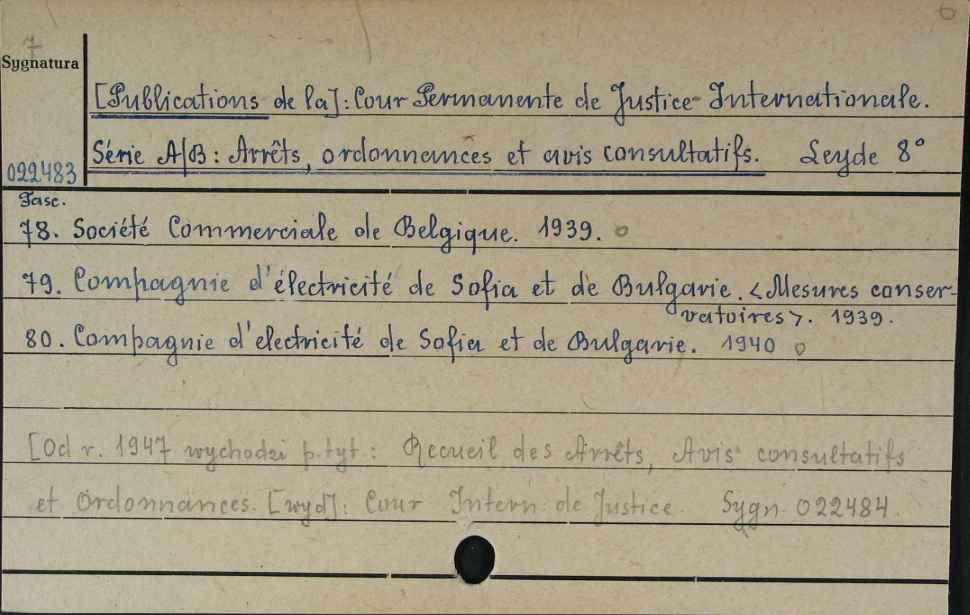 7
6
Sygnatura
[Publications de la]: Cour Permanente de Justice Internationale.
Série A/B: Arrêts, ordonnances et avis consultatifs. Leyde 8°
022483
Fasc.
78. Société Commerciale de Belgique. 1939.
79. Compagnie d'électricité de Sofia et de Bulgarie. <Mesures conser-
vatoires>. 1939.
80. Compagnie d'électricité de Sofia et de Bulgarie. 1940
[Od r. 1947 wychodzi p. tyt: Recueil des Arrêts, Avis consultatifs
et Ordonnances. [wyd]: Cour Intern. de Justice. Sygn. 022484.